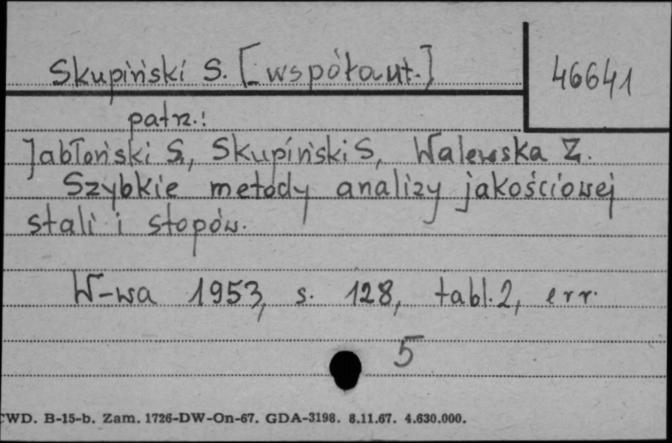 Skupiński S. [współaut.]
46641
patrz.:
Jabłoński S, Skupiński S, Walewska Z.
Szybkie metody analizy jakościowej
stali i stopów.
W-wa 1953, s. 128, tabl. 2, err.
5
CWD. B-15-b. Zam. 1726-DW-On-67. GDA-3198. 8.11.67. 4.630.000.